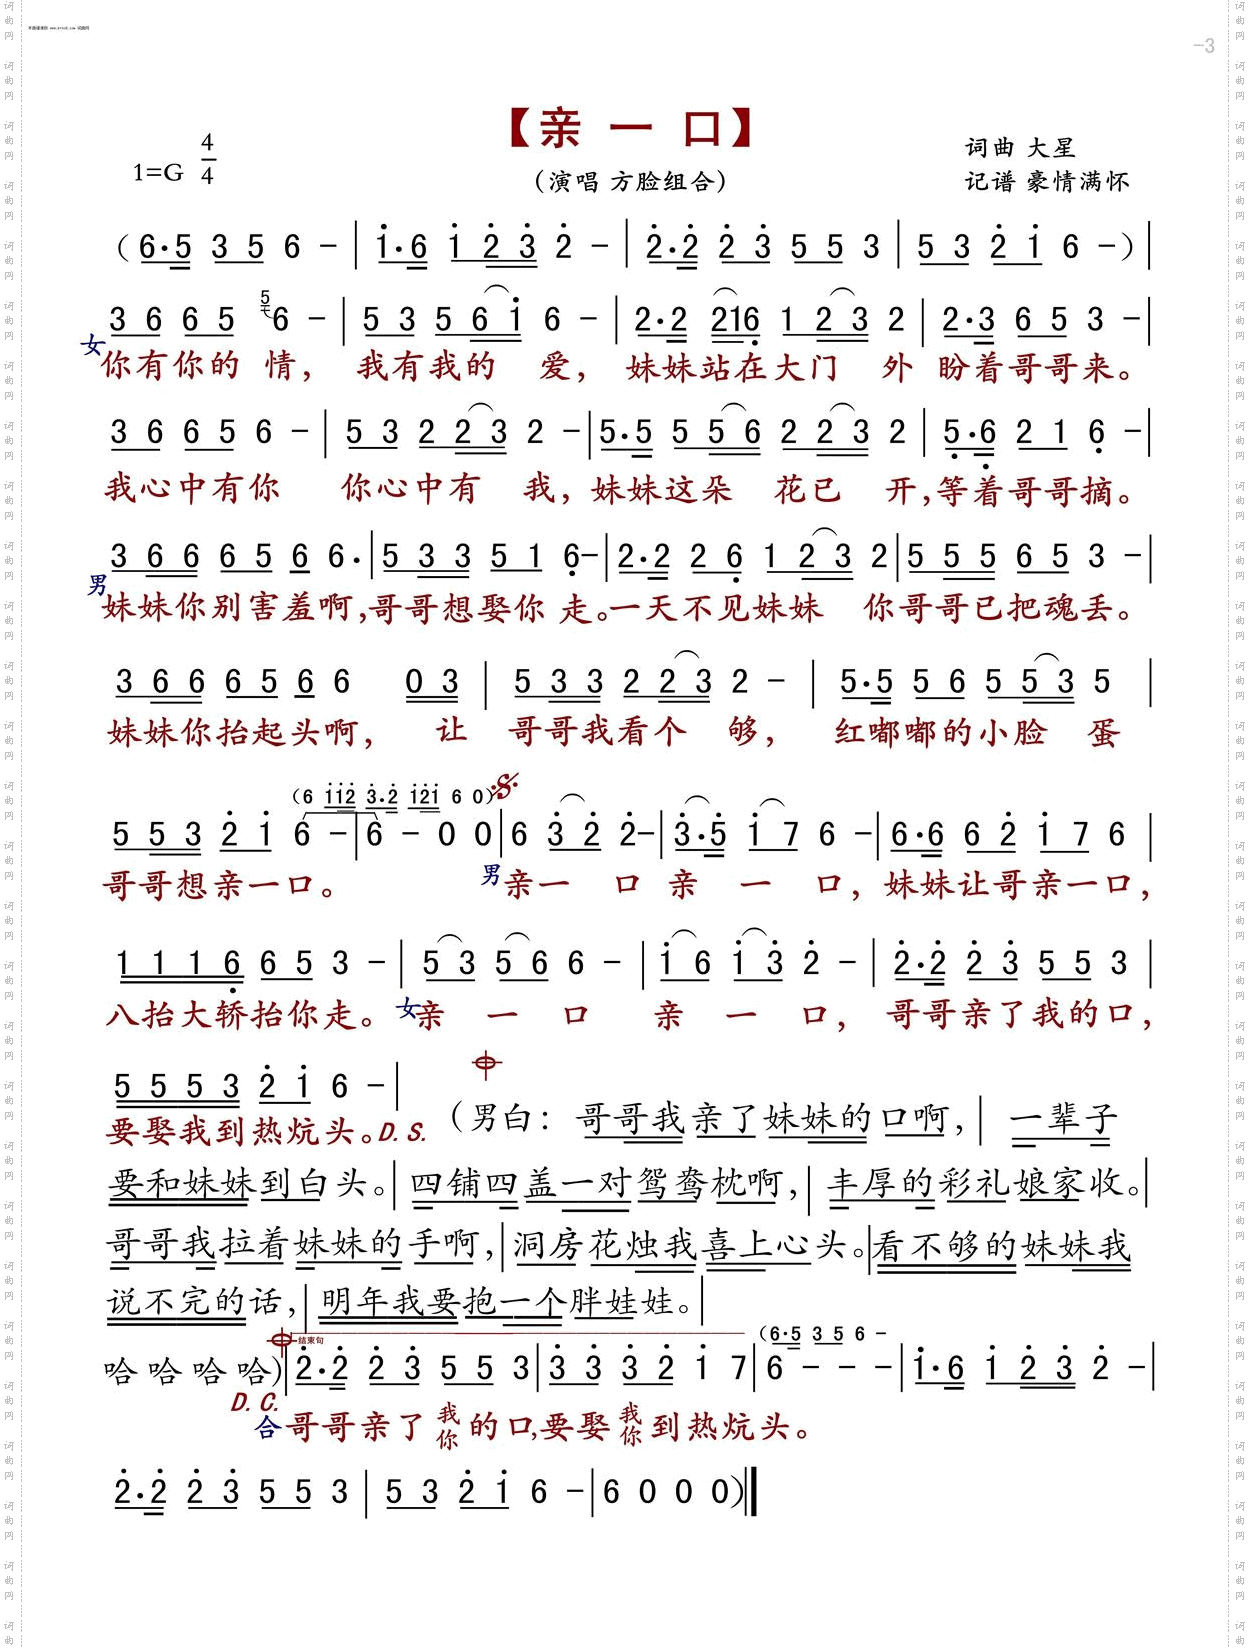 -3
【亲 一 口】
1=G 4/4
(演唱 方脸组合)
词曲 大星
记谱 豪情满怀
(6·5 3 5 6 - | i·6 i 2 3 2 - | 2·2 2 3 5 5 3 | 5 3 2 i 6 -) |
3 6 6 5 5 6 - | 5 3 5 6 i 6 - | 2·2 216 1 2 3 2 | 2·3 6 5 3 - |
女 你有你的 情, 我有我的 爱, 妹妹站在大门 外 盼着哥哥来。
3 6 6 5 6 - | 5 3 2 2 3 2 - | 5·5 5 5 6 2 2 3 2 | 5·6 2 1 6 - |
我心中有你 你心中有 我, 妹妹这朵 花已 开, 等着哥哥摘。
3 6 6 6 5 6 6· | 5 3 3 5 1 6 - | 2·2 2 6 1 2 3 2 | 5 5 5 6 5 3 - |
男 妹妹你别害羞啊, 哥哥想娶你 走。一天不见妹妹 你哥哥已把魂丢。
3 6 6 6 5 6 6 0 3 | 5 3 3 2 2 3 2 - | 5·5 5 6 5 5 3 5 |
妹妹你抬起头啊, 让 哥哥我看个 够, 红嘟嘟的小脸 蛋
(6 i i 2 3·2 i 2 i 6 0)
5 5 3 2 i 6 - | 6 - 0 0 | 6 3 2 2 - | 3·5 i 7 6 - | 6·6 6 2 i 7 6 |
哥哥想亲一口。 男 亲一 口 亲 一 口, 妹妹让哥亲一口,
1 1 1 6 6 5 3 - | 5 3 5 6 6 - | i 6 i 3 2 - | 2·2 2 3 5 5 3 |
八抬大轿抬你走。 女 亲 一 口 亲 一 口, 哥哥亲了我的口,
5 5 5 3 2 i 6 - |
要娶我到热炕头。D. S. (男白: 哥哥我亲了妹妹的口啊, | 一辈子
要和妹妹到白头。| 四铺四盖一对鸳鸯枕啊, | 丰厚的彩礼娘家收。|
哥哥我拉着妹妹的手啊, | 洞房花烛我喜上心头。| 看不够的妹妹我
说不完的话, | 明年我要抱一个胖娃娃。|
结束句 (6·5 3 5 6 -
哈哈哈哈) | 2·2 2 3 5 5 3 | 3 3 3 2 i 7 | 6 - - - | i·6 i 2 3 2 - |
D. C.
合 哥哥亲了 我 你 的口, 要娶 我 你 到热炕头。
2·2 2 3 5 5 3 | 5 3 2 i 6 - | 6 0 0 0) ‖